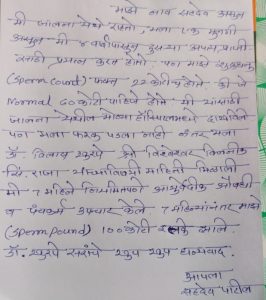 माझे नाव सहदेव असुन
मी जालना येथे राहतो, मला एक मुलगी
असुन मी ४ वर्षापासुन दुसऱ्या अपत्यासाठी
प्रयत्न करत होतो पण माझे शुक्राणु
(Sperm count) फक्त 22 कोटीच होते की जे
Normal 60 कोटी पाहिजे होते मी यासाठी
जालना मधील मोठ्या हॉस्पिटलमध्ये दाखविले
पण मला फरक पडला नाही नंतर मला
डॉ. विलास खुरपे श्री विश्वेश्वर क्लिनीक
सिं. राजा यांच्याविषयी माहिती मिळाली
मी 7 महिने नियमितपणे आयुर्वेदीक औषधी
व पंचकर्म उपचार केले 7 महिन्यानंतर माझे
(Sperm Pound) 100 कोटी झाले.
डॉ. खुरपे सरांचे खुप खुप धन्यवाद.
आपला
सहदेव पाटिल